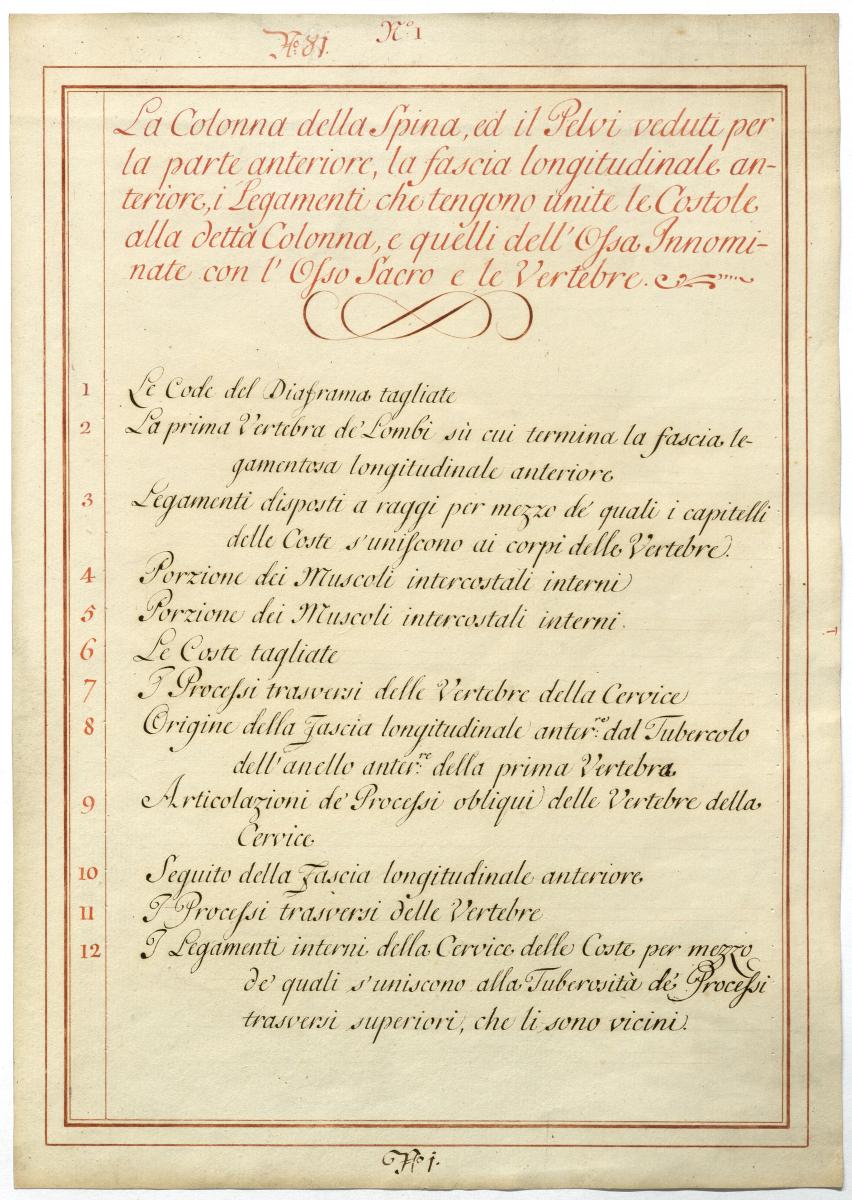 No 81.
No 1
La Colonna della Spina, ed il Pelvi veduti per
la parte anteriore, la fascia longitudinale an-
teriore, i Legamenti che tengono unite le Costole
alla dettà Colonna, e quelli dell'Ossa Innomi-
nate con l'Osso Sacro e le Vertebre.
1 Le Code del Diaframa tagliate
2 La prima Vertebra de' Lombi sù cui termina la fascia le-
gamentosa longitudinale anteriore
3 Legamenti disposti a raggi per mezzo de' quali i capitelli
delle Coste s'uniscono ai corpi delle Vertebre.
4 Porzione dei Muscoli intercostali interni
5 Porzione dei Muscoli intercostali interni.
6 Le Coste tagliate
7 I Processi trasversi delle Vertebre della Cervice
8 Origine della Fascia longitudinale anter.re dal Tubercolo
dell'anello anter.re della prima Vertebra
9 Articolazioni de' Processi obliqui delle Vertebre della
Cervice
10 Seguito della Fascia longitudinale anteriore
11 I Processi trasversi delle Vertebre
12 I Legamenti interni della Cervice delle Coste per mezzo
de' quali s'uniscono alla Tuberosità de' Processi
trasversi superiori, che li sono vicini.
No 1.